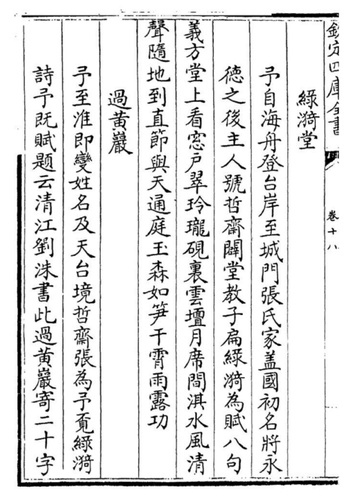 欽定四庫全書
卷十八
綠漪堂
予自海舟登台岸至城門張氏家蓋國初名將永
德之後主人號哲齋闢堂教子扁綠漪為賦八句
義方堂上看窓戶翠玲瓏硯裏雲壇月席間淇水風清
聲隨地到直節與天通庭玉森如笋干霄雨露功
過黃巖
予至淮即變姓名及天台境哲齋張為予覔綠漪
詩予既賦題云清江劉洙書此過黃巖寄二十字